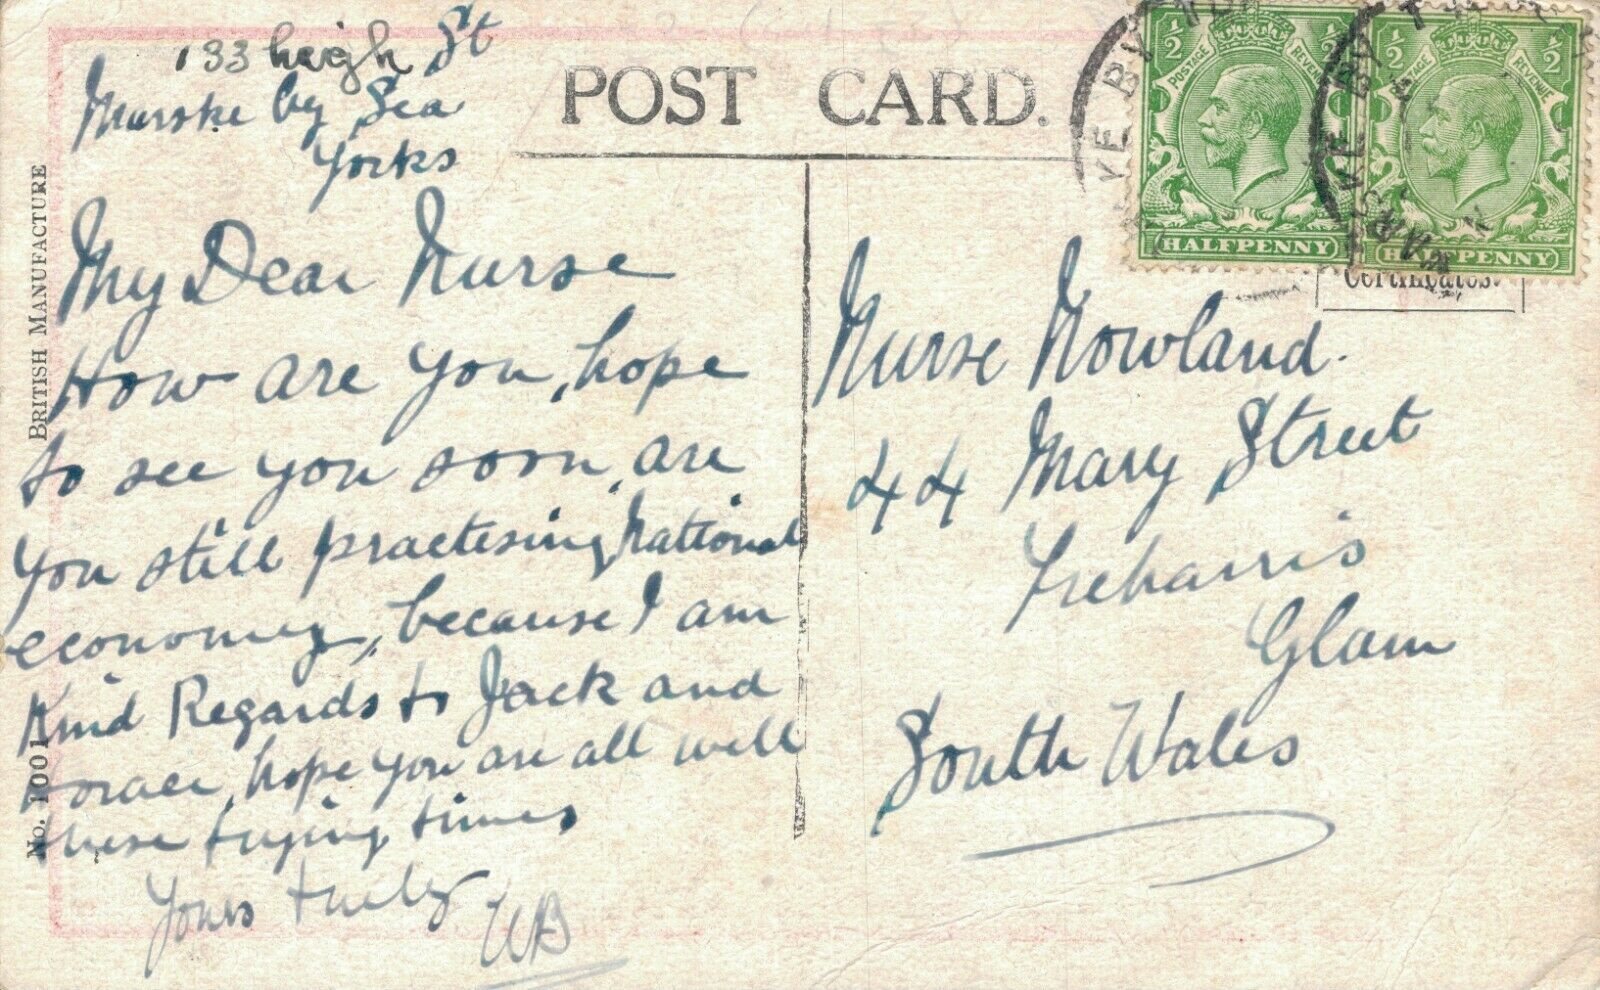 133 heigh St
Marske by Sea
Yorks
POST CARD.
BRITISH MANUFACTURE
No. 1001
My Dear Nurse
How are you, hope
to see you soon, are
you still practising National
economy, because I am
Kind Regards to Jack and
Horace, hope you are all well
these trying times
Yours truly
WB
POSTAGE REVENUE
½ ½
HALFPENNY
POSTAGE REVENUE
½ ½
HALFPENNY
Certificates.
Nurse Nowland.
44 Mary Street
Treharris
Glam
South Wales